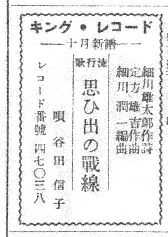 キング・レコード
十月新譜
細川雄太郎作詩
定方雄吉作曲
細川潤一編曲
流行歌
思ひ出の戰線
唄 谷田信子
レコード番號 四七〇三八